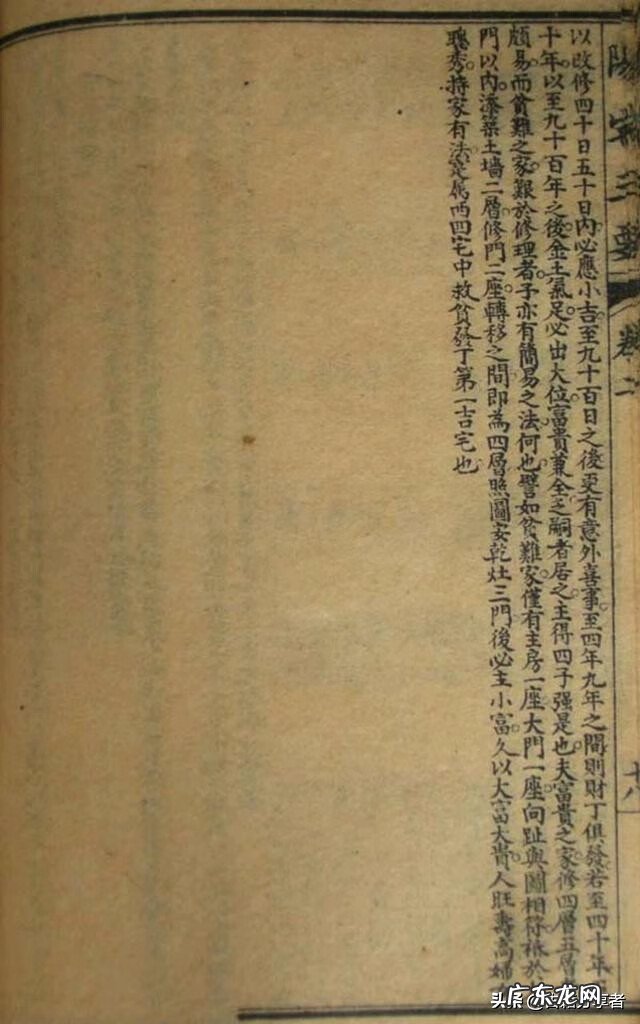 陽宅三要 卷二
十八
以改修四十日五十日內必應小吉至九十百日之後更有意外喜事至四年九年之間則財丁俱發若至四十年
十年以至九十百年之後金土氣足必出大位富貴兼全乏嗣者居之主得四子强是也夫富貴之家修四層五層
頗易而貧難之家艱於修理者予亦有簡易之法何也譬如貧難家僅有主房一座大門一座向趾與圖相符祗於
門以內添築土墻二層修門二座轉移之間即為四層照圖安乾灶三門後必主小富久以大富大貴人旺壽高婦
聰秀持家有法定屬西四宅中救貧發丁第一吉宅也
头条
广东龙网